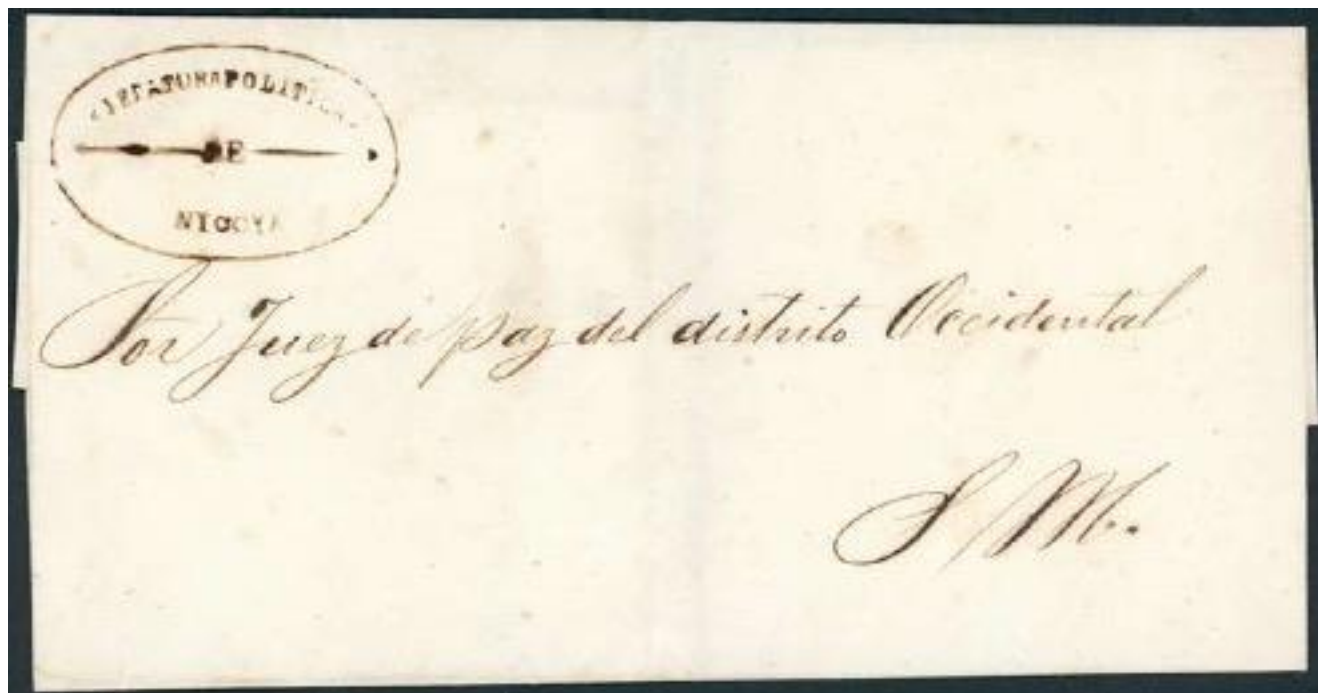 GEFATURA POLITICA
DE
NICOYA
Sor Juez de paz del distrito Occidental
S M.